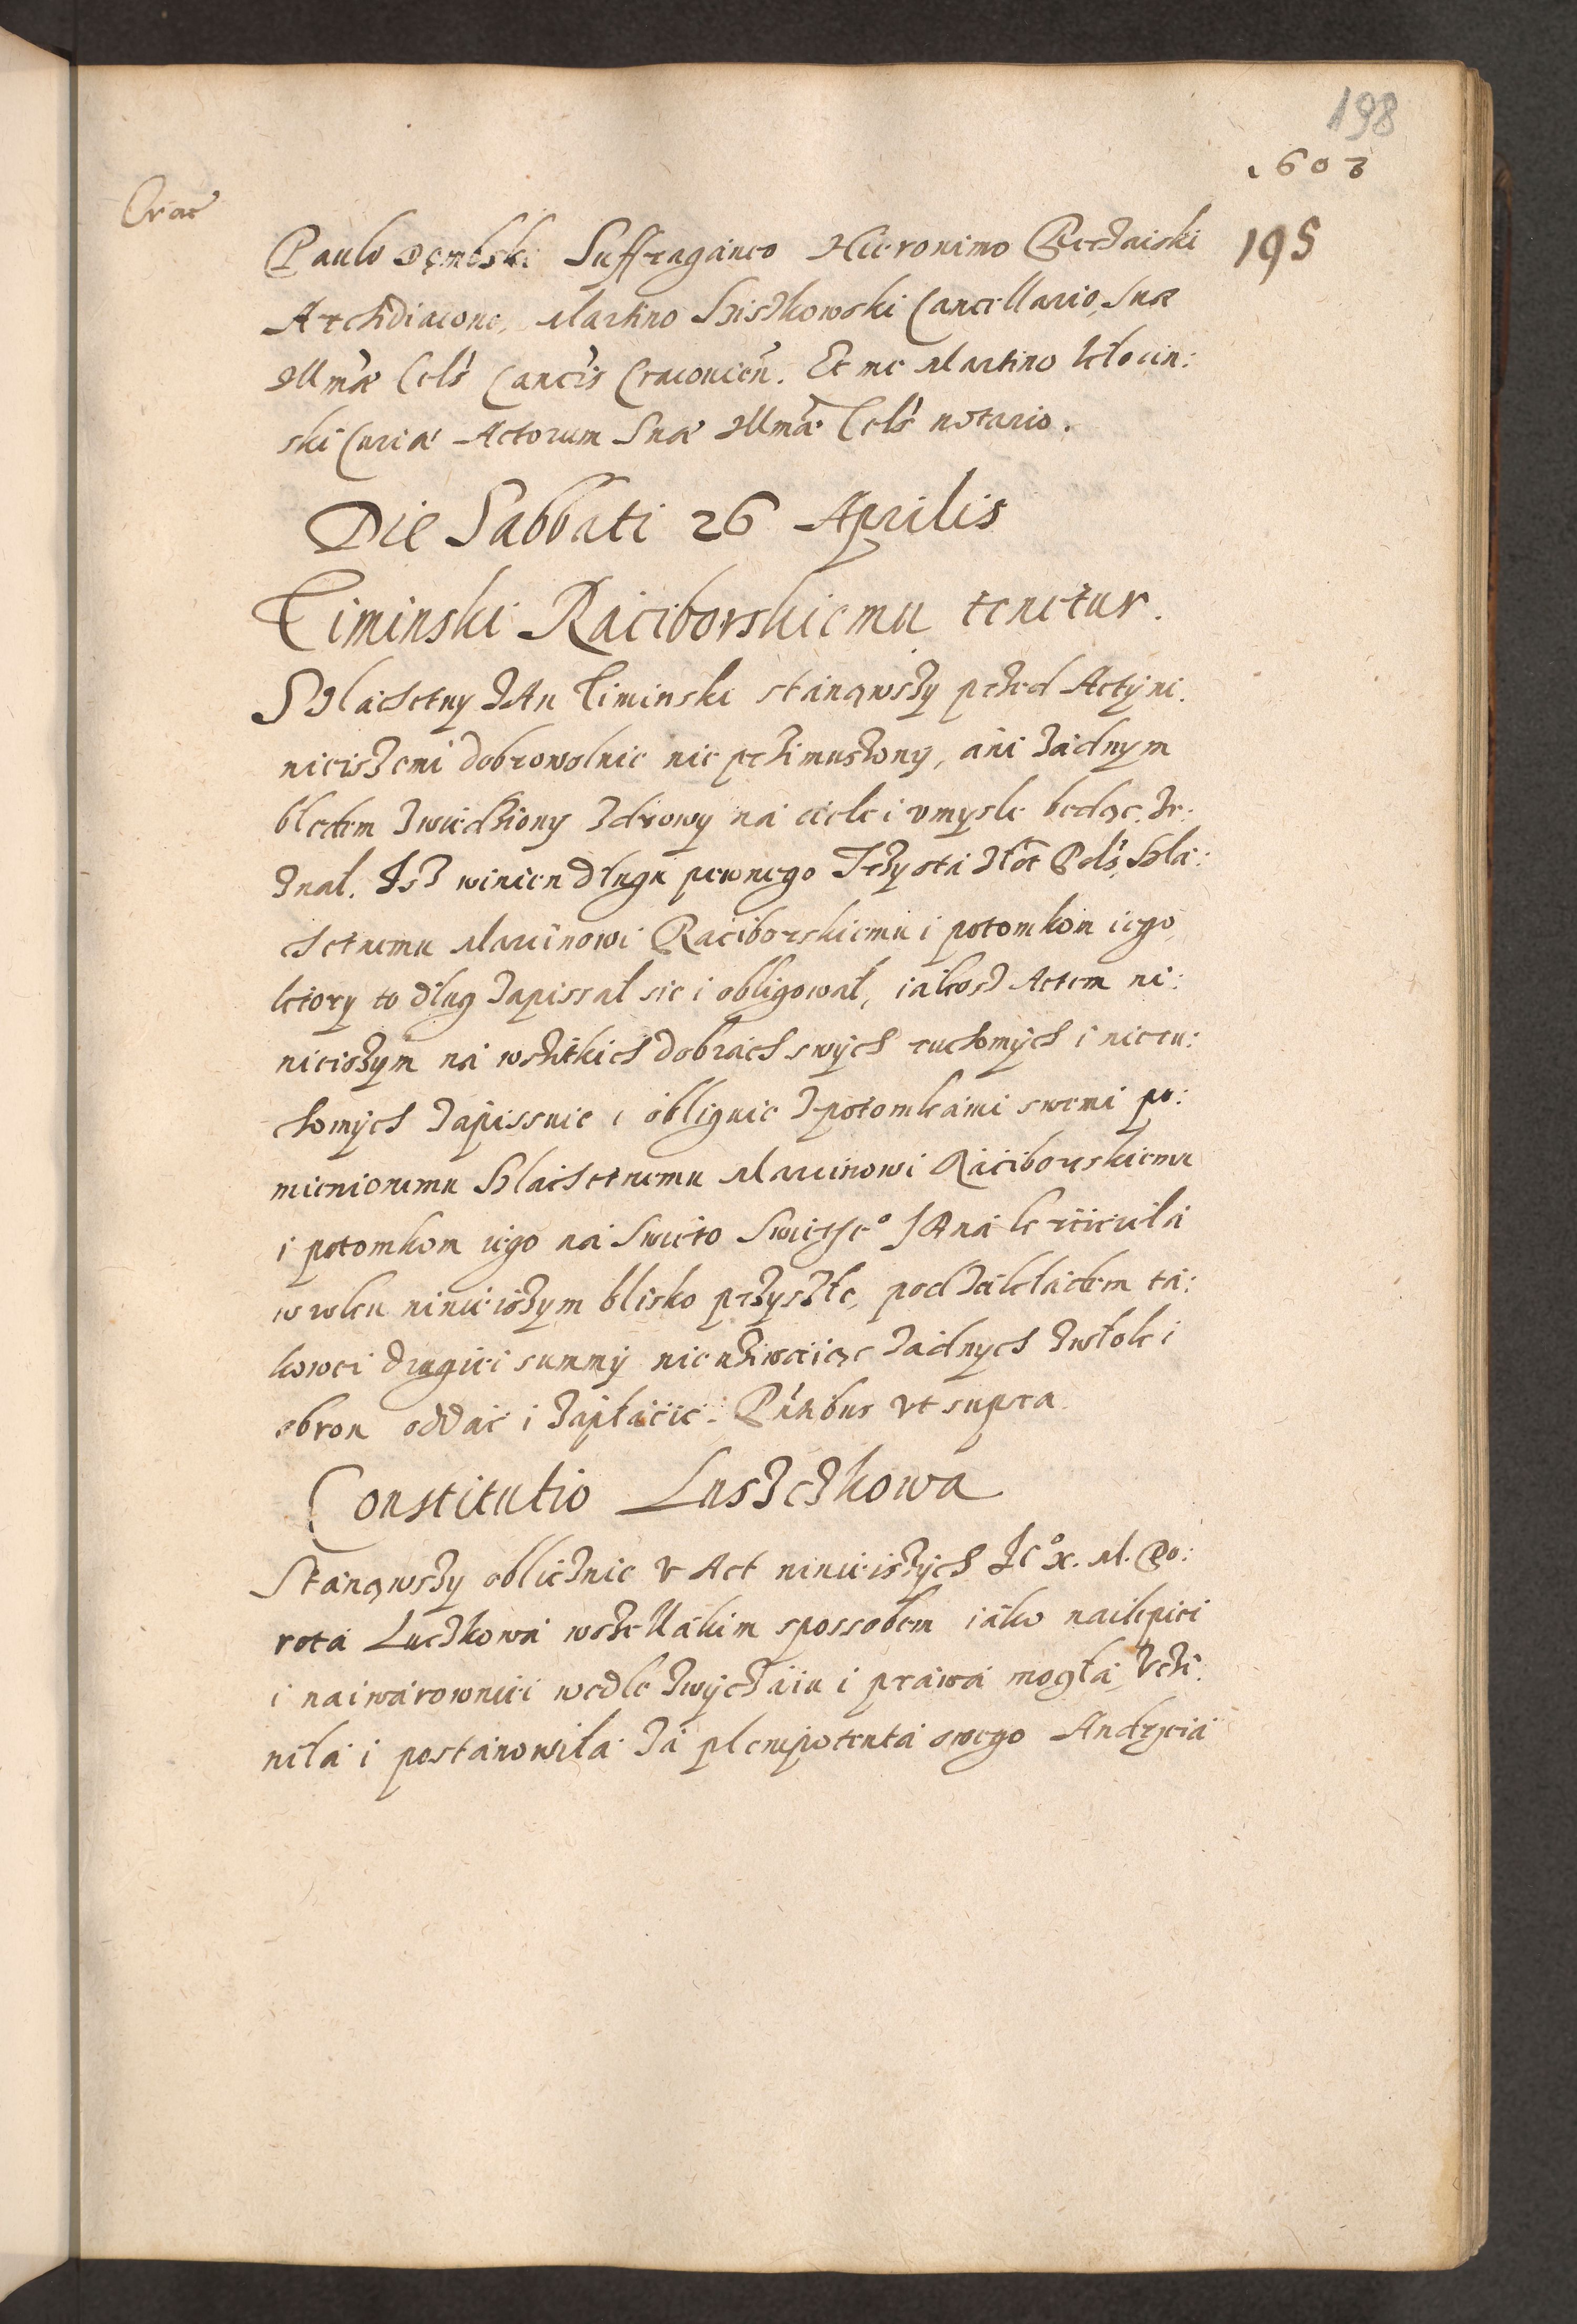 198
1603
Crac
195
Paulo Dęmbski Suffraganeo Hieronimo Powodowski
Archidiacono, Martino Szyszkowski Cancellario, Suæ
Illmæ Cels Cancris Cracovien. Et me Martino Kłocin:
ski Curiæ Actorum Suæ Illmæ Cels notario.
Die Sabbati 26 Aprilis
Timinski Raciborskiemu tenetur.
Szlachetny JAn Timinski stanąwszy przed Acty ni:
nieiszemi dobrowolnie nie przimuszony, ani żadnym
błedem zwiedziony zdrowy na ciele i vmysle bedąc ze:
znał. Isz winien długu pewnego Trzysta złot Pols, Szla:
chetnemu Marcinowi Raciborskiemu i potomkom iego,
ktory to dług zapissał sie i obligował, iakosz Actem ni:
nieiszym na wszitkich dobrach swych ruchomych i nieru:
chomych zapissuie i obliguie z potomkami swemi po:
mienionemu Szlachetnemu Marcinowi Raciborskiemu
i potomkom iego na Swieto Swietego JAna krzciciela
w roku ninieiszym blisko przyszłe, pod zakładem ta:
kowei drugiei summy nie użiwaiąc żadnych zwłok i
obron oddać i zapłacić. Pntibus vt supra.
Constitutio Luszczkowa
Stanąwszy oblicznie v Act ninieiszych Jeo x. M. Do:
rota Luczkowa wszellakim spossobem iako nailepiei
i naiwarowniei wedle zwyczaiu i prawa mogła, Vczi:
niła i postanowiła za plenipotenta swego Andrzeia